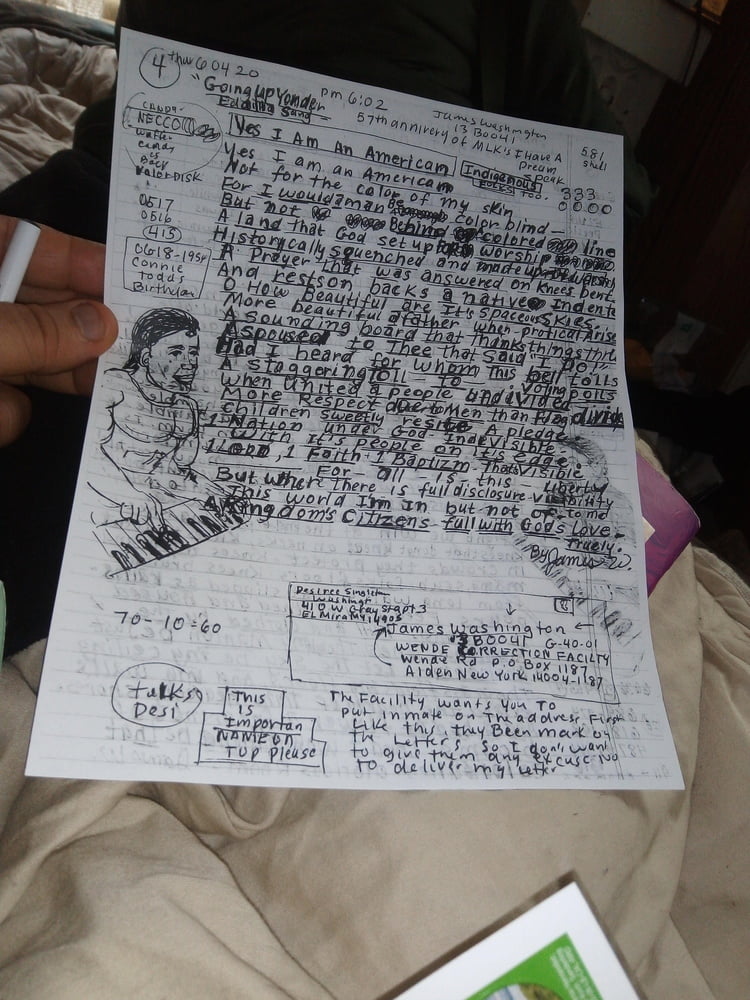 4
thur 6 04 20
pm 6:02
"Going up yonder
57th annivery of MLK's I Have A
Dream
Speak
too.
James Washington
13 B0041
581
Shell
333
00.00
CANDY-
NECCO
waffer
candy
is
Back
Valor DISK
0517
0516
(413)
0618-1954
Connie
Todds
Birthday
Yes I Am An American
Indigenous
Yes I am an American
Not for the color of my skin
For I would man Be color blind—
But not Behind colored line
A land that God set up worship
Historcally squenched and made up
A Prayer that was answered on knees bent
And rests on backs a native Indente
O How Beautiful are It's spaceous skies-
More beautiful a father when protical Arise
A sounding board that thanks things thru
Aspoused to Thee that Said I Do,
Had I heard for whom this Bell tolls
A staggering toll — to voting polls
When United a people undivided
More Respect due to Men than Flag divide
Children sweetly resite A pledge
1 Nation under God- Indevisible
With it's people on it's edge
1 Lord, 1 Faith- 1 Baptizm- That's visible
For all is this — Liberty
But where there is full disclosure-visibility
This world I'm in but not of to me
Kingdom's Citizens full with God's Love-
Truely.
By James W.
70-10=60
Desiree Singleton
Washingt
410 W Gray St apt 3
ELMira NY 14905
James Washington
13 B0041 G-40-01
WENDE CORRECTION FACILTY
Wende Rd P.O. Box 1187
Alden New York 14004-1187
talks
Desi
This
is
Importan
NAME ON
TOP please
The Facility wants you To
put inmate on The address First
Like this, they Been mark by
The Letters, So I don't want
to give them any excuse No
To deliver my Letter